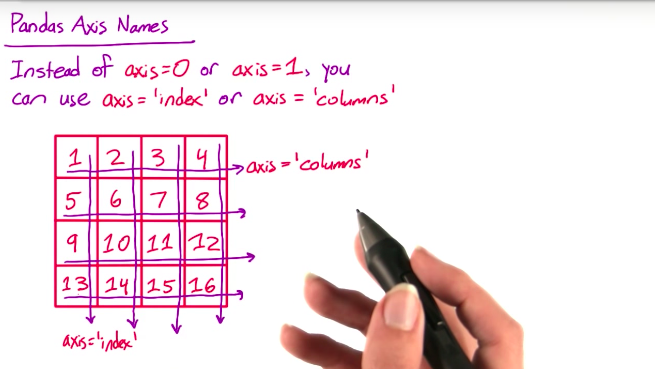 Pandas Axis Names
Instead of axis=0 or axis=1, you
can use axis='index' or axis = 'columns'
1 2 3 4
axis='columns'
5 6 7 8
9 10 11 12
13 14 15 16
axis='index'